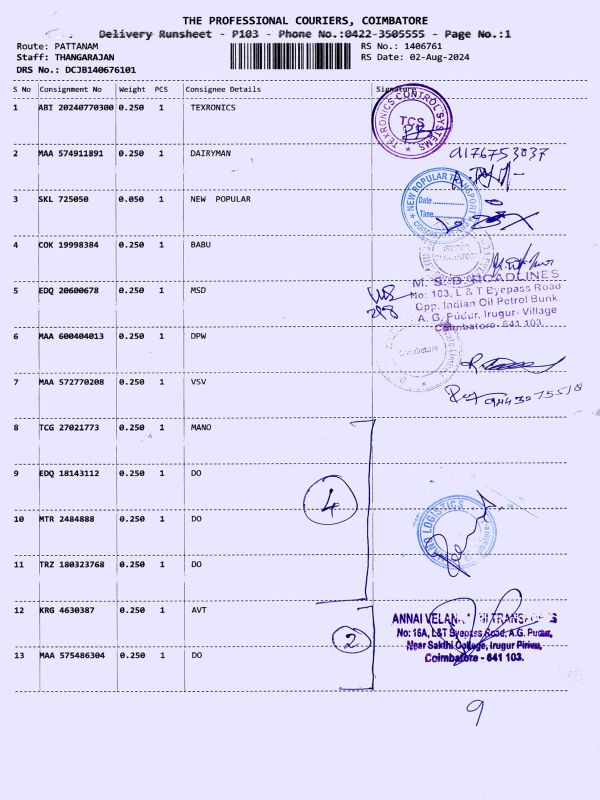 THE PROFESSIONAL COURIERS, COIMBATORE
Delivery Runsheet - P103 - Phone No.:0422-3505555 - Page No.:1
Route: PATTANAM
RS No.: 1406761
Staff: THANGARAJAN
RS Date: 02-Aug-2024
DRS No.: DCJB140676101
S No Consignment No Weight PCS Consignee Details Signature
1 ABI 20240770300 0.250 1 TEXRONICS
TEXRONICS CONTROL SYSTEMS
TCS
2 MAA 574911891 0.250 1 DAIRYMAN
9176753037
3 SKL 725050 0.050 1 NEW POPULAR
NEW POPULAR TRANSPORT
Date
Time
4 COK 19998384 0.250 1 BABU
5 EDQ 20600678 1 MSD
M. S. D. ROADLINES
No: 103, L & T Byepass Road
Opp. Indian Oil Petrol Bunk,
A. G. Pudur, Irugur- Village
Coimbatore- 641 103.
6 MAA 600404013 0.250 1 DPW
Coimbatore
7 MAA 572770208 0.250 1 VSV
8 TCG 27021773 0.250 1 MANO
9 EDQ 18143112 0.250 1 DO
4
10 MTR 2484888 0.250 1 DO
LOGISTICS
11 TRZ 180323768 0.250 1 DO
12 KRG 4630387 0.250 1 AVT
ANNAI
No: 16A, L&T Byepass Road, A.G. Pudur,
Near Sakthi College, Irugur Pirivu,
Coimbatore - 641 103.
2
13 MAA 575486304 0.250 1 DO
9